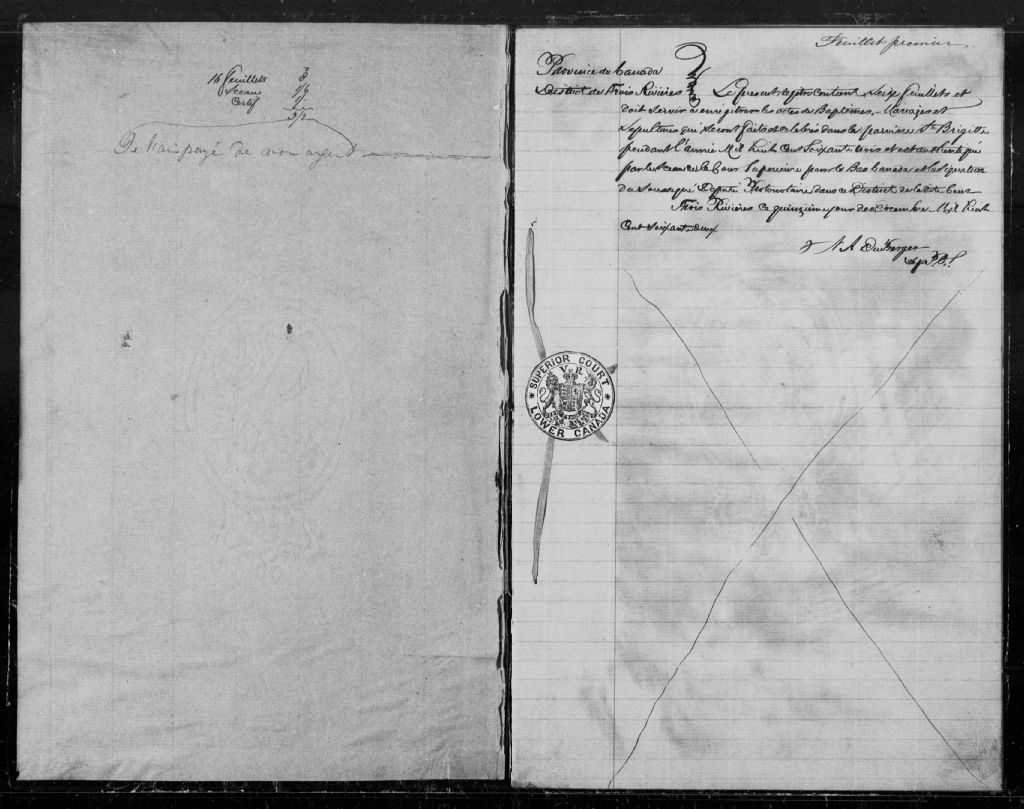 16 feuillets 8
Sceau 1/6
Certif 1/.
3/2
Je l'ai payé de mon argent
Feuillet premier
Province du Canada
District de Trois Rivières } Le présent registre contient Seize feuillets et
doit servir à enregistrer les actes de Baptêmes, Mariages et
Sépultures qui seront faits et célébrés dans la paroisse Ste Brigitte
pendant l'année Mil huit Cent Soixante trois et est authentiqué
par le Sceau de la Cour Supérieure pour le Bas Canada et la Signature
du Soussigné Député Protonotaire dans ce District de la dite Cour
Trois Rivières Ce quinzième jour de décembre Mil huit
Cent soixante deux
SUPERIOR COURT
V R
LOWER CANADA